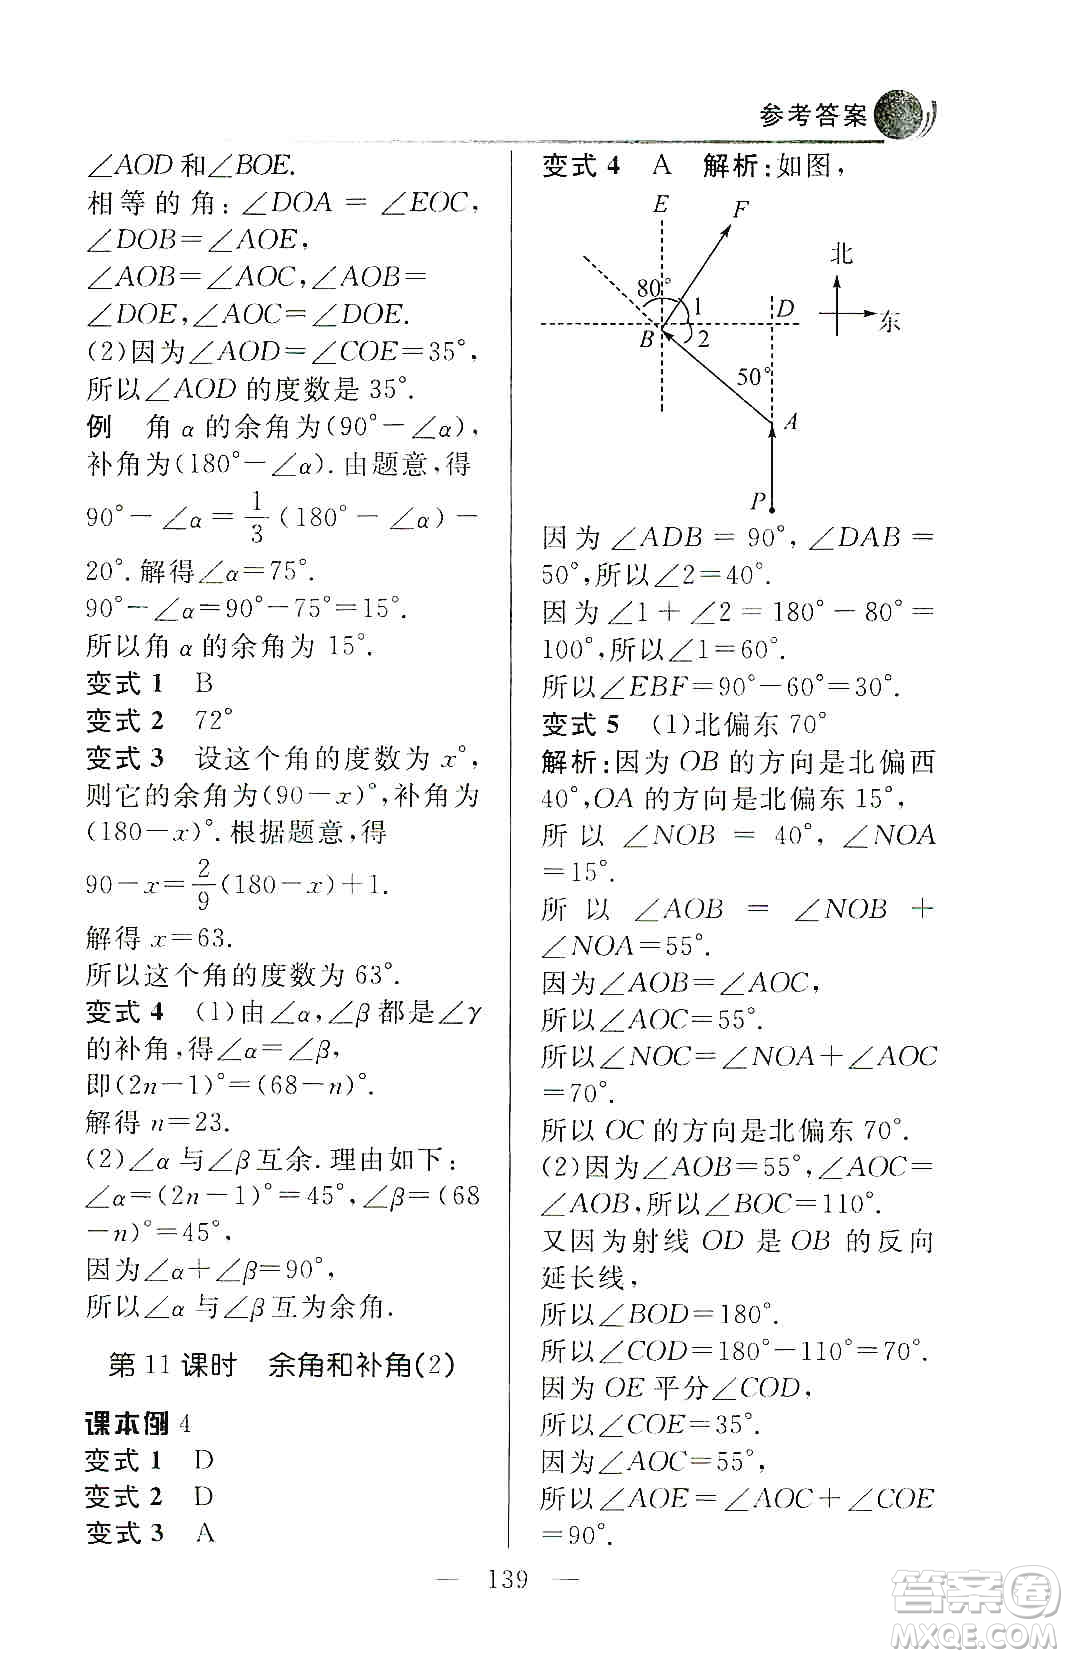 参考答案
∠AOD和∠BOE.
相等的角:∠DOA=∠EOC,
∠DOB=∠AOE,
∠AOB=∠AOC,∠AOB=
∠DOE,∠AOC=∠DOE.
(2)因为∠AOD=∠COE=35°,
所以∠AOD的度数是35°.
例 角α的余角为(90°-∠α),
补角为(180°-∠α).由题意,得
90°-∠α=1/3(180°-∠α)-
20°.解得∠α=75°.
90°-∠α=90°-75°=15°.
所以角α的余角为15°.
变式1 B
变式2 72°
变式3 设这个角的度数为x°,
则它的余角为(90-x)°,补角为
(180-x)°.根据题意,得
90-x=2/9(180-x)+1.
解得x=63.
所以这个角的度数为63°.
变式4 (1)由∠α,∠β都是∠γ
的补角,得∠α=∠β,
即(2n-1)°=(68-n)°.
解得n=23.
(2)∠α与∠β互余.理由如下:
∠α=(2n-1)°=45°,∠β=(68
-n)°=45°,
因为∠α+∠β=90°,
所以∠α与∠β互为余角.
第11课时 余角和补角(2)
课本例4
变式1 D
变式2 D
变式3 A
变式4 A 解析:如图,
E
F
北
80°
1
D
东
B
2
50°
A
P
因为∠ADB=90°,∠DAB=
50°,所以∠2=40°.
因为∠1+∠2=180°-80°=
100°,所以∠1=60°.
所以∠EBF=90°-60°=30°.
变式5 (1)北偏东70°
解析:因为OB的方向是北偏西
40°,OA的方向是北偏东15°,
所以∠NOB=40°,∠NOA
=15°.
所以∠AOB=∠NOB+
∠NOA=55°.
因为∠AOB=∠AOC,
所以∠AOC=55°.
所以∠NOC=∠NOA+∠AOC
=70°.
所以OC的方向是北偏东70°.
(2)因为∠AOB=55°,∠AOC=
∠AOB,所以∠BOC=110°.
又因为射线OD是OB的反向
延长线,
所以∠BOD=180°.
所以∠COD=180°-110°=70°.
因为OE平分∠COD,
所以∠COE=35°.
因为∠AOC=55°,
所以∠AOE=∠AOC+∠COE
=90°.
— 139 —
答案卷
MXQE.COM